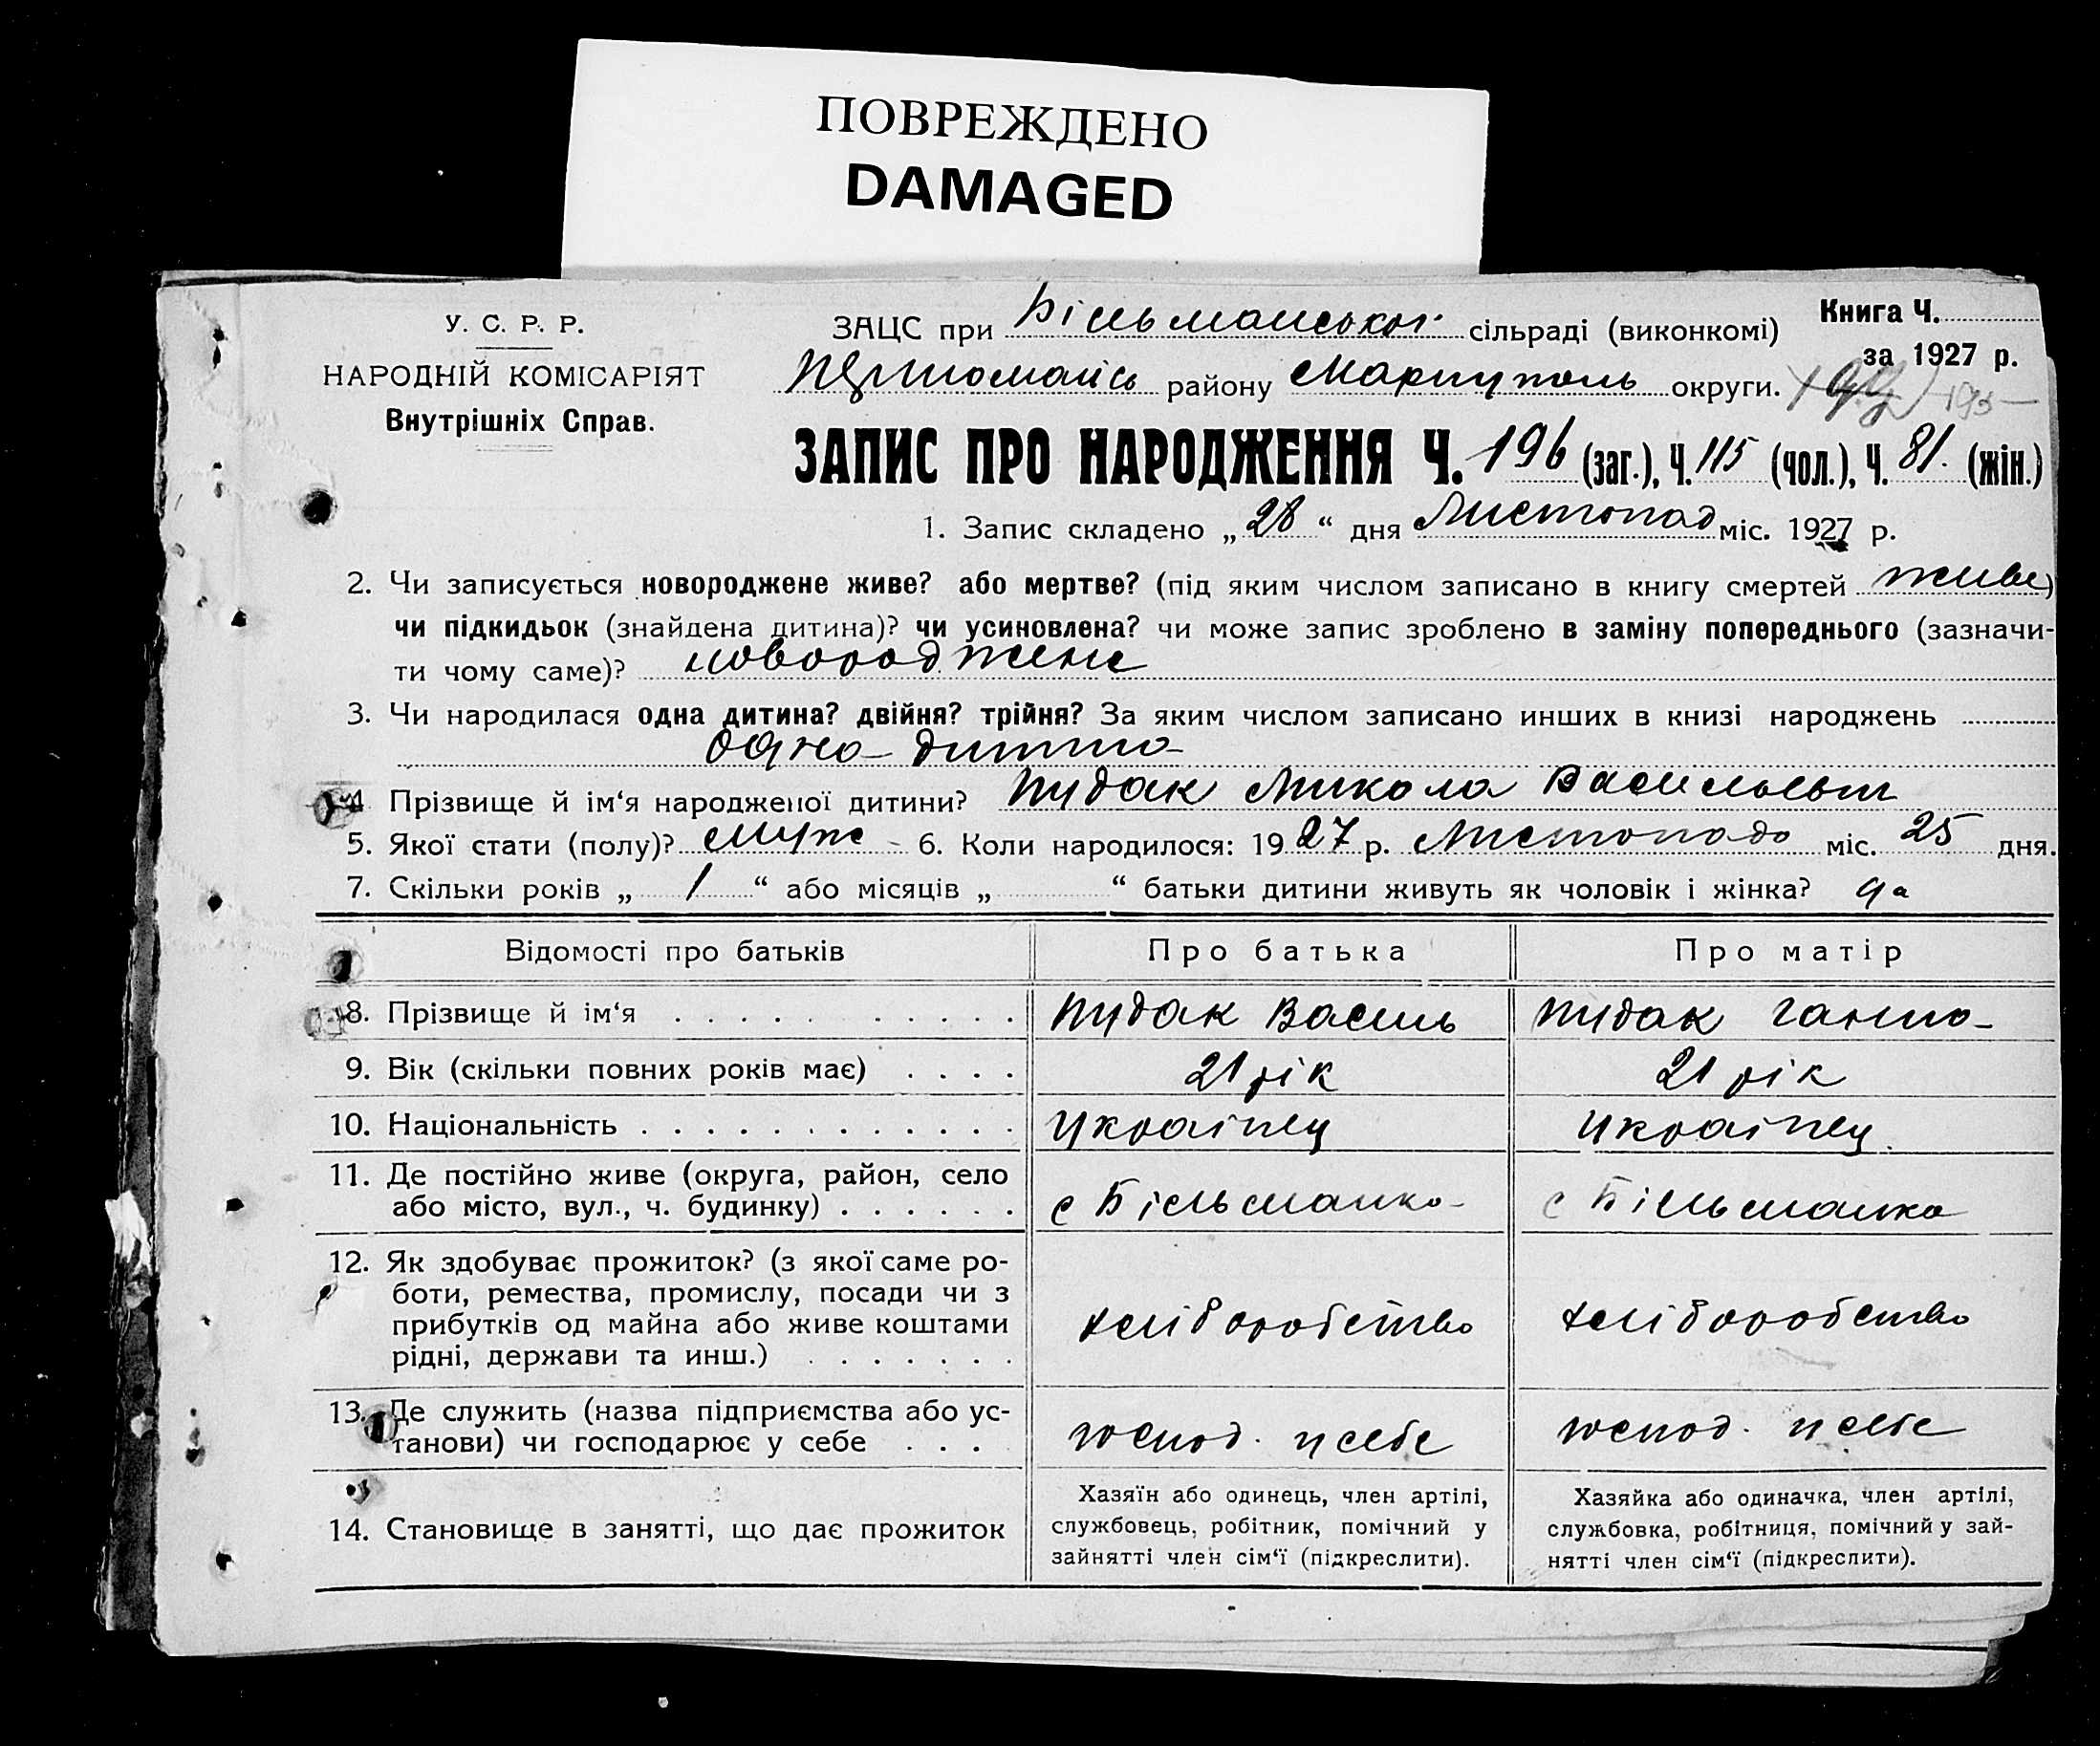 ПОВРЕЖДЕНО
DAMAGED
У. С. Р. Р.
НАРОДНІЙ КОМІСАРІЯТ
Внутрішніх Справ.
Книга Ч.
за 1927 р.
ЗАЦС при Більманської сільраді (виконкомі)
Першомайсь району Маріуполь округи.
195
ЗАПИС ПРО НАРОДЖЕННЯ Ч. 196 (заг.), Ч. 115 (чол.), Ч. 81. (жін.)
1. Запис складено „ 28 “ дня Листопад міс. 1927 р.
2. Чи записується новороджене живе? або мертве? (під яким числом записано в книгу смертей живе)
чи підкидьок (знайдена дитина)? чи усиновлена? чи може запис зроблено в заміну попереднього (зазначи-
ти чому саме)? новороджене
3. Чи народилася одна дитина? двійня? трійня? За яким числом записано инших в книзі народжень
одна дитина
4 Прізвище й ім‘я народженої дитини? Пудак Микола Васильевич
5. Якої стати (полу)? муж 6. Коли народилося: 1927 р. Листопадо міс. 25 дня.
7. Скільки років „ 1 “ або місяців „ “ батьки дитини живуть як чоловік і жінка? да
Відомості про батьків Про батька Про матір
8. Прізвище й ім‘я Пудак Василь Пудак Ганна
9. Вік (скільки повних років має) 21 рік 21 рік
10. Національність Украінец Украінец.
11. Де постійно живе (округа, район, село
або місто, вул., ч. будинку) с Більманка с Більманка
12. Як здобуває прожиток? (з якої саме ро-
боти, ремества, промислу, посади чи з
прибутків од майна або живе коштами
рідні, держави та инш.)
хліборобство хліборобство
13. Де служить (назва підприємства або ус-
танови) чи господарює у себе
господ. у себе господ. у себе
14. Становище в занятті, що дає прожиток
Хазяїн або одинець, член артілі,
службовець, робітник, помічний у
зайнятті член сім‘ї (підкреслити).
Хазяйка або одиначка, член артілі,
службовка, робітниця, помічний у зай-
нятті член сім‘ї (підкреслити).